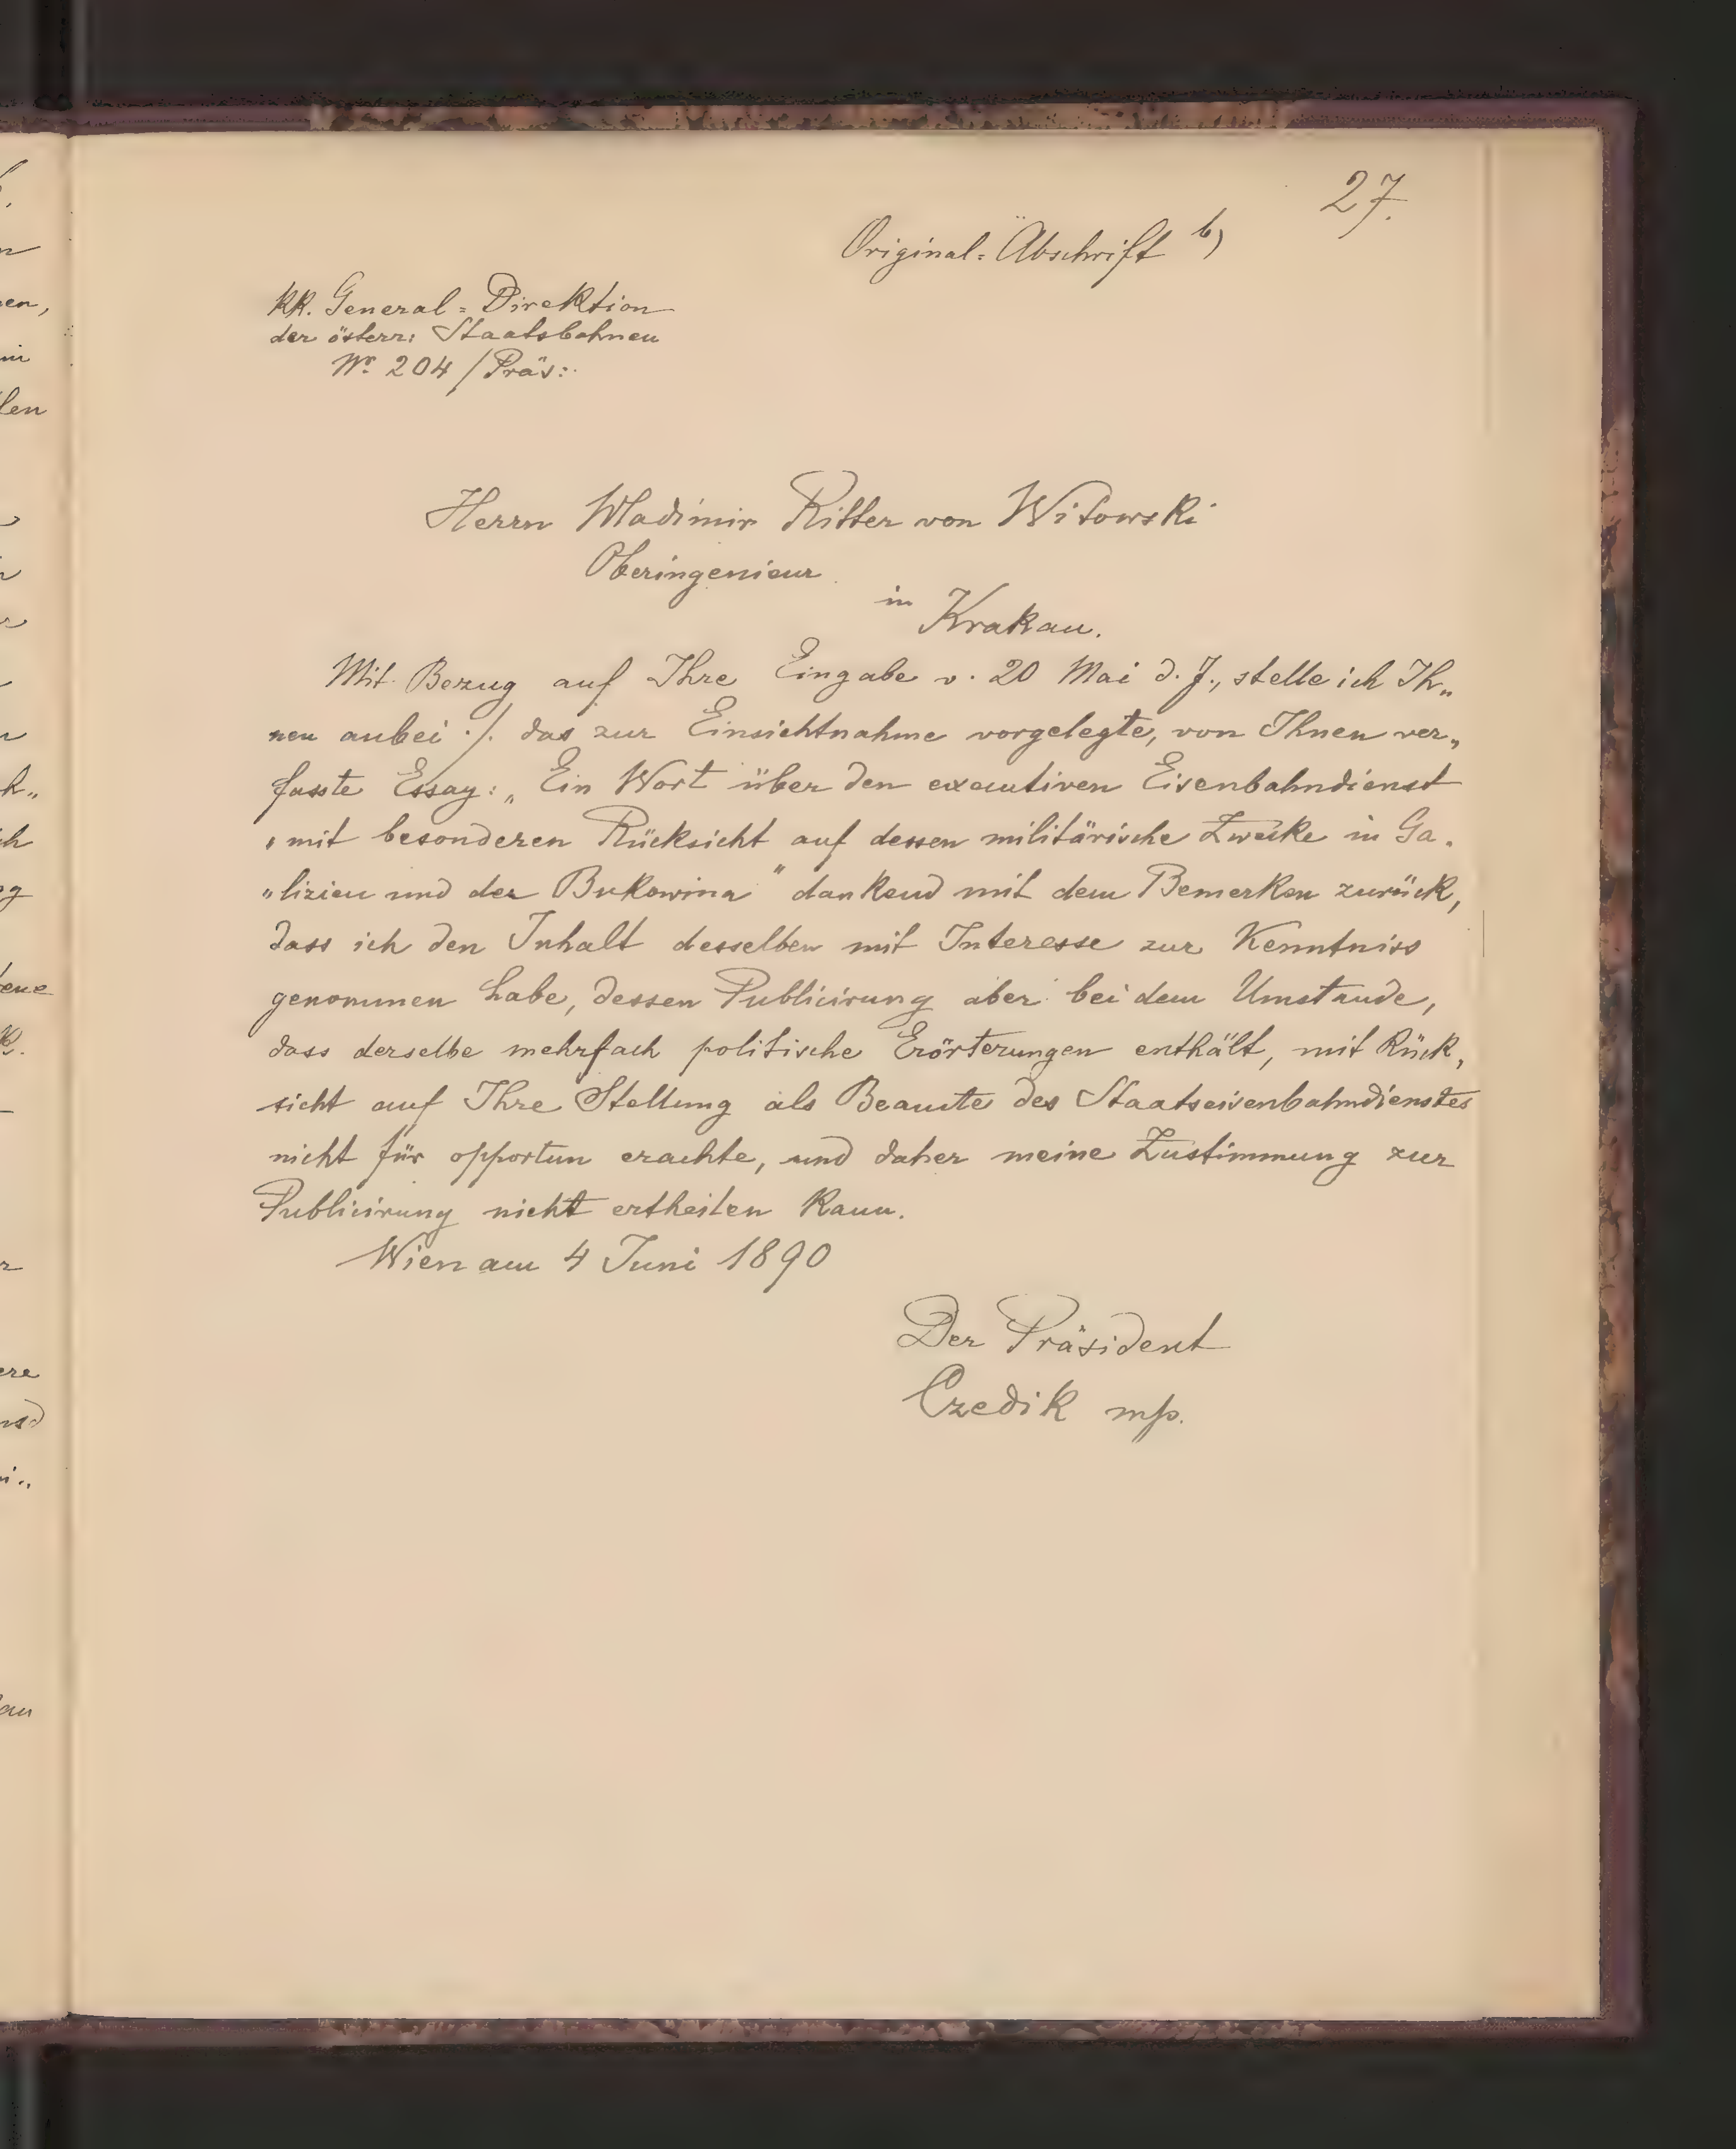 27.
Original-Abschrift b)
KK. General-Direktion
der österr: Staatsbahnen
Nr. 204/Präs:
Herrn Wladimir Ritter von Witowski
Oberingenieur
in
Krakau.
Mit Bezug auf Ihre Eingabe v. 20 Mai d. J., stelle ich Ih„
nen anbei ./. das zur Einsichtnahme vorgelegte, von Ihnen ver„
fasste Essay: „Ein Wort über den executiven Eisenbahndienst
„mit besonderen Rücksicht auf dessen militärische Zwecke in Ga.
„lizien und der Bukowina" dankend mit dem Bemerken zurück,
dass ich den Inhalt desselben mit Interesse zur Kenntniss
genommen habe, dessen Publicirung aber bei dem Umstande,
dass derselbe mehrfach politische Erörterungen enthält, mit Rück,
sicht auf Ihre Stellung als Beamte des Staatseisenbahndienstes
nicht für opportun erachte, und daher meine Zustimmung zur
Publicirung nicht ertheilen kann.
Wien am 4 Juni 1890
Der Präsident
Czedik mp.